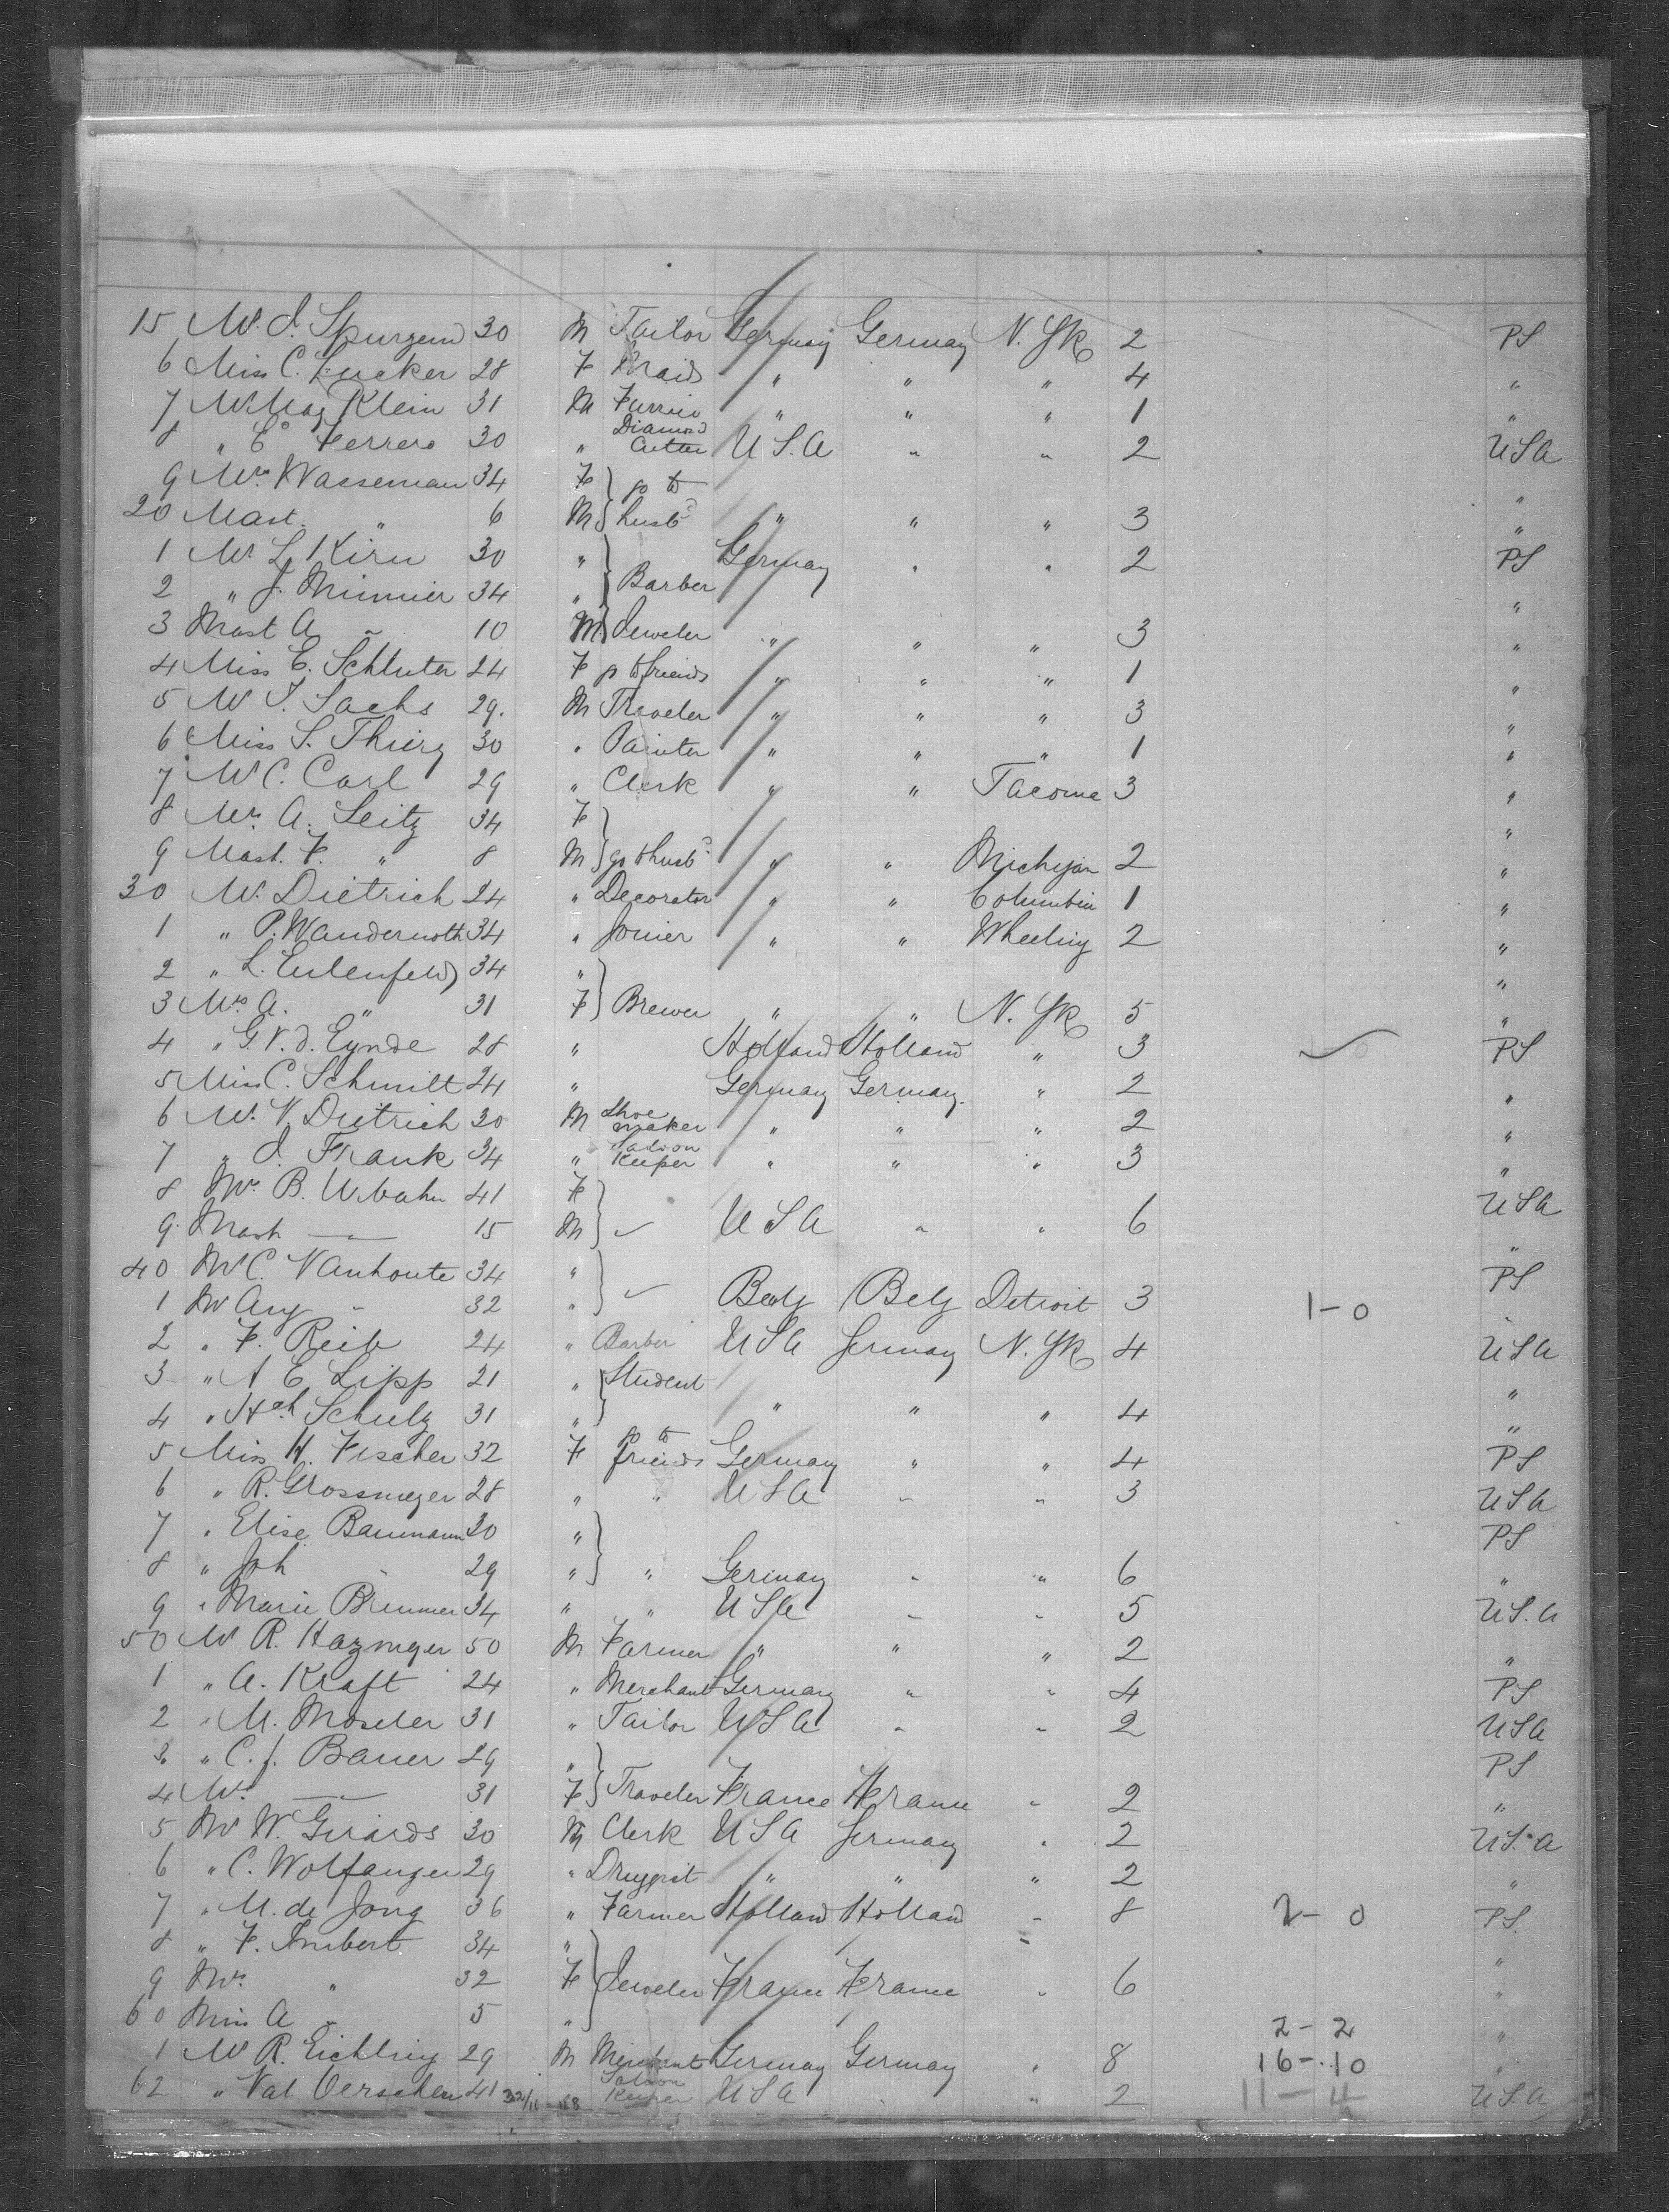 15 Mr. J. Spurgeno 30 M Tailor Germany Germany N. Yk 2 PS
6 Miss C. Zucker 28 F Maid " " " 4 "
7 Mr Max Klein 31 M Furrier " " " 1 "
8 " E Ferrero 30 " Diamond Cutter U S. A " " 2 USA
9 Mrs. Wasseman 34 F } go to "
20 Mast. " 6 M } husbd " " " 3 "
1 Mr L. Kirn 30 " } Germany " " 2 PS
2 " J. Minnier 34 " } Barber "
3 Mast A " 10 M } Jeweler " " " 3 "
4 Miss E. Schluter 24 F go to friends " " " 1 "
5 Mr I. Sachs 29. M Traveler " " " 3 "
6 Miss S. Thiery 30 " Painter " " " 1 "
7 Mr C. Carl 29 " Clerk " " Tacoma 3 "
8 Mrs. A. Seitz 34 F } "
9 Mast. F. " 8 M } go to husbd " " Michigan 2 "
30 Mr. Dietrich 24 " Decorator " " Columbia 1 "
1 " P. Wandernoth 34 " Joiner " " Wheeling 2 "
2 " L. Eulenfeld 34 " } "
3 Mrs A. " 31 F } Brewer " " N. Yk 5 "
4 " G. V. d. Eynde 28 " Holland Holland " 3 PS
5 Miss C. Schmilt 24 " Germany Germany. " 2 "
6 Mr. V. Dietrich 30 M Shoe maker " " " 2 "
7 " J. Frank 34 " Saloon Keeper " " " 3 "
8 Mrs. B. Urbahn 41 F } USA
9. Mast — " — 15 M } ✓ U S A " " 6 "
40 Mr C. Vanhoute 34 " } PS
1 Mr Aug " 32 " } ✓ Belg Belg Detroit 3 1-0 "
2 " F. Reib 24 " Barber U S A Germany N. Yk 4 USA
3 " A E Lipp 21 " { Student "
4 " Hch Schulz 31 " " " " 4 "
5 Miss H. Fischer 32 F go to friends Germany " " 4 PS
6 " R. Grossmeyer 28 " " U S A " " 3 USA
7 " Elise Baumann 30 " } PS
8 " Joh " 29 " } " Germany " " 6 "
9 " Marie Brunner 34 " " U S A " " 5 US. A
50 Mr R. Hazmeyer 50 M Farmer " " " 2 "
1 " A. Kraft 24 " Merchant Germany " " 4 PS
2 " M. Moseler 31 " Tailor U S A " " 2 USA
3. " C. J. Bauer 29 " } PS
4 Mrs. — " — 31 F } Traveler France France " 2 "
5 Mr W. Girards 30 M Clerk U S A Germany " 2 US. A
6 " C. Wolfanger 29 " Druggist " " " 2 "
7 " M. de Jong 36 " Farmer Holland Holland " 8 2- 0 PS.
8 " F. Imbert 34 " } "
9 Mrs. " 32 F } Jeweler France France " 6 "
60 Miss A " 5 " } 2- 2 "
1 Mr R. Eichling 29 M Merchant Germany Germany " 8 16-.10 "
62 " Val Oerschen 41 Saloon Keeper U S A " " 2 11-4 USA